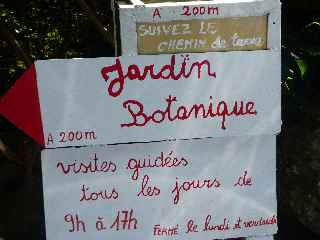 A 200m
SUIVEZ LE
CHEMIN de terre
Jardin
Botanique
A 200m
visites guidées
tous les jours de
9h à 17h FERMÉ le lundi et vendredi